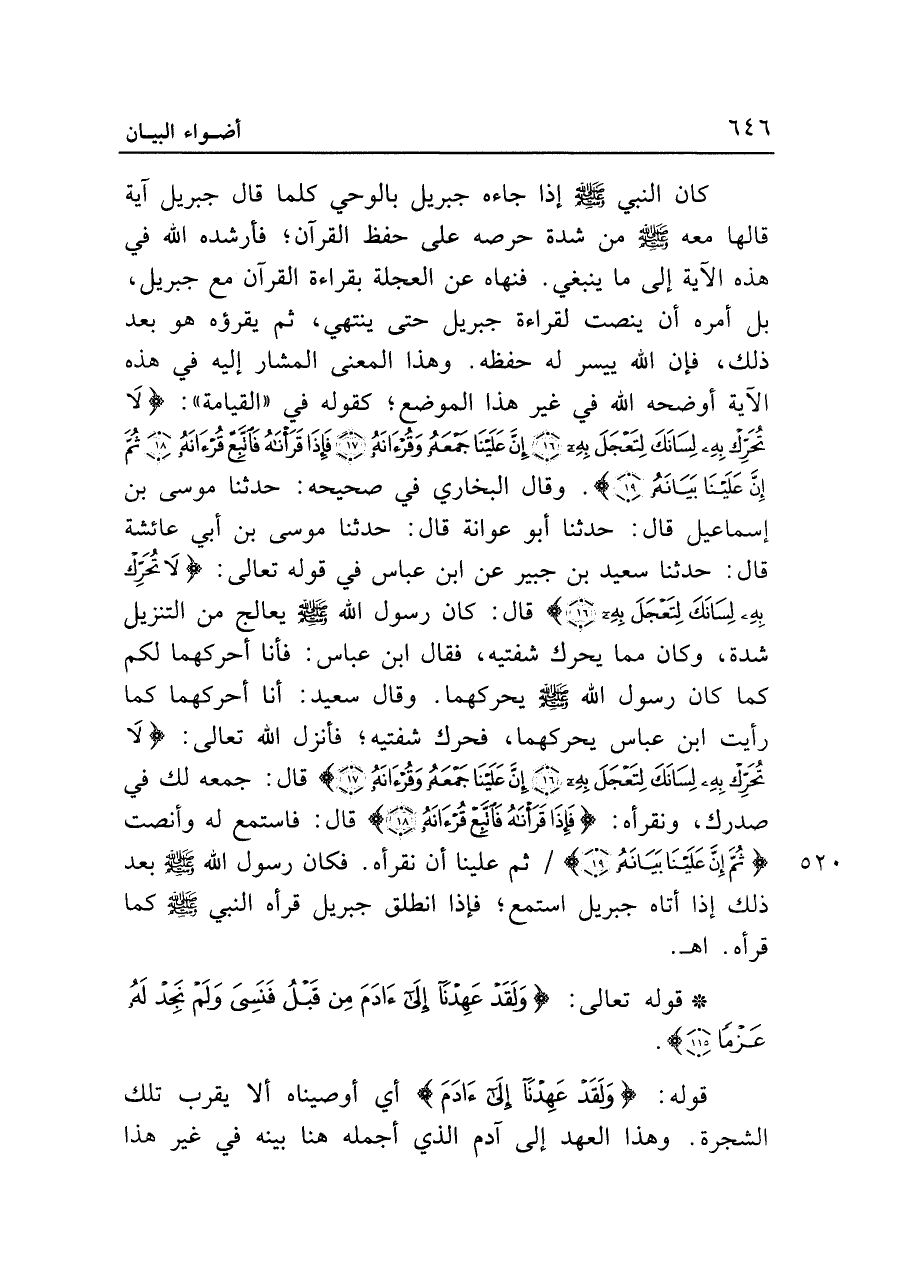 ٦٤٦ أضـواء البيـان
كان النبي ﷺ إذا جاءه جبريل بالوحي كلما قال جبريل آية
قالها معه ﷺ من شدة حرصه على حفظ القرآن؛ فأرشده الله في
هذه الآية إلى ما ينبغي. فنهاه عن العجلة بقراءة القرآن مع جبريل،
بل أمره أن ينصت لقراءة جبريل حتى ينتهي، ثم يقرؤه هو بعد
ذلك، فإن الله ييسر له حفظه. وهذا المعنى المشار إليه في هذه
الآية أوضحه الله في غير هذا الموضع؛ كقوله في «القيامة»: ﴿لَا
تُحَرِّكْ بِهِۦ لِسَانَكَ لِتَعْجَلَ بِهِۦٓ ۝١٦ إِنَّ عَلَيْنَا جَمْعَهُۥ وَقُرْءَانَهُۥ ۝١٧ فَإِذَا قَرَأْنَٰهُ فَٱتَّبِعْ قُرْءَانَهُۥ ۝١٨ ثُمَّ
إِنَّ عَلَيْنَا بَيَانَهُۥ ۝١٩﴾. وقال البخاري في صحيحه: حدثنا موسى بن
إسماعيل قال: حدثنا أبو عوانة قال: حدثنا موسى بن أبي عائشة
قال: حدثنا سعيد بن جبير عن ابن عباس في قوله تعالى: ﴿لَا تُحَرِّكْ
بِهِۦ لِسَانَكَ لِتَعْجَلَ بِهِۦٓ ۝١٦﴾ قال: كان رسول الله ﷺ يعالج من التنزيل
شدة، وكان مما يحرك شفتيه، فقال ابن عباس: فأنا أحركهما لكم
كما كان رسول الله ﷺ يحركهما. وقال سعيد: أنا أحركهما كما
رأيت ابن عباس يحركهما، فحرك شفتيه؛ فأنزل الله تعالى: ﴿لَا
تُحَرِّكْ بِهِۦ لِسَانَكَ لِتَعْجَلَ بِهِۦٓ ۝١٦ إِنَّ عَلَيْنَا جَمْعَهُۥ وَقُرْءَانَهُۥ ۝١٧﴾ قال: جمعه لك في
صدرك، ونقرأه: ﴿فَإِذَا قَرَأْنَٰهُ فَٱتَّبِعْ قُرْءَانَهُۥ ۝١٨﴾ قال: فاستمع له وأنصت
﴿ثُمَّ إِنَّ عَلَيْنَا بَيَانَهُۥ ۝١٩﴾ / ثم علينا أن نقرأه. فكان رسول الله ﷺ بعد ٥٢٠
ذلك إذا أتاه جبريل استمع؛ فإذا انطلق جبريل قرأه النبي ﷺ كما
قرأه. اهـ.
* قوله تعالى: ﴿وَلَقَدْ عَهِدْنَآ إِلَىٰٓ ءَادَمَ مِن قَبْلُ فَنَسِىَ وَلَمْ نَجِدْ لَهُۥ
عَزْمًا ۝١١٥﴾.
قوله: ﴿وَلَقَدْ عَهِدْنَآ إِلَىٰٓ ءَادَمَ﴾ أي أوصيناه ألا يقرب تلك
الشجرة. وهذا العهد إلى آدم الذي أجمله هنا بينه في غير هذا